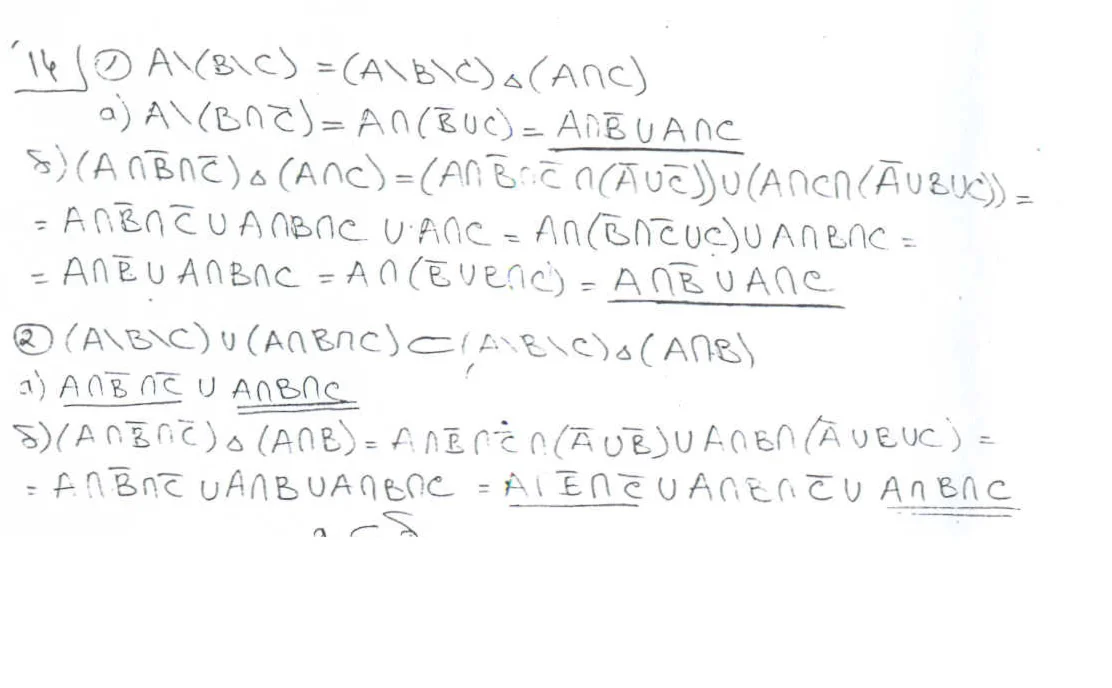 '14 ① A\(B\C) = (A\B\C) △ (A∩C)
a) A\(B∩C̅) = A∩(B̅∪C) = A∩B̅ ∪ A∩C
б) (A∩B̅∩C̅) △ (A∩C) = (A∩B̅∩C̅∩(A̅∪C̅)) ∪ (A∩C∩(A̅∪B∪C)) =
= A∩B̅∩C̅ ∪ A∩B∩C ∪ A∩C = A∩(B̅∩C̅∪C) ∪ A∩B∩C =
= A∩B̅ ∪ A∩B∩C = A∩(B̅∪B∩C) = A∩B̅ ∪ A∩C
② (A\B\C) ∪ (A∩B∩C) ⊂ (A\B\C) △ (A∩B)
a) A∩B̅∩C̅ ∪ A∩B∩C
б) (A∩B̅∩C̅) △ (A∩B) = A∩B̅∩C̅∩(A̅∪B̅) ∪ A∩B∩(A̅∪B∪C) =
= A∩B̅∩C̅ ∪ A∩B ∪ A∩B∩C = A∩B̅∩C̅ ∪ A∩B∩C̅ ∪ A∩B∩C
a ⊂ б